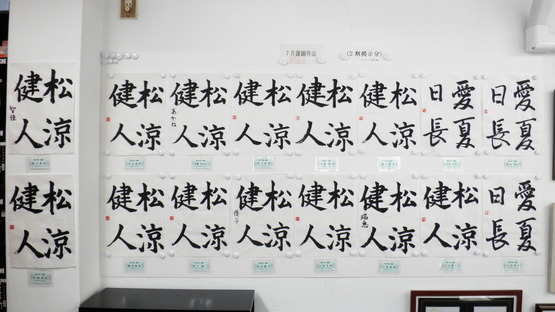 7月課題作品
(2期掲示分)
愛夏
日長
愛夏
日長
松涼
健人
松涼
健人
松涼
健人
松涼
健人
あかね
松涼
健人
松涼
健人
愛夏
日長
松涼
健人
松涼
健人
瑞恵
松涼
健人
松涼
健人
松涼
健人
松涼
健人
松涼
健人